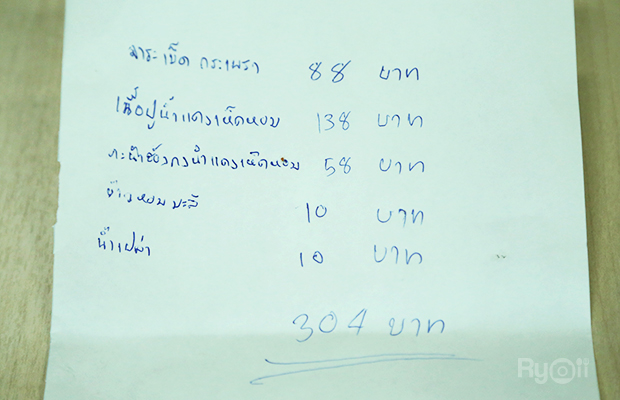 สาระเป็ด กระเพรา 88 บาท
เนื้อปูน้ำแดงเห็ดหอม 138 บาท
คะน้าฮ่องกงน้ำแดงเห็ดหอม 58 บาท
ข้าวหอมมะลิ 10 บาท
น้ำเปล่า 10 บาท
304 บาท
Ryoii